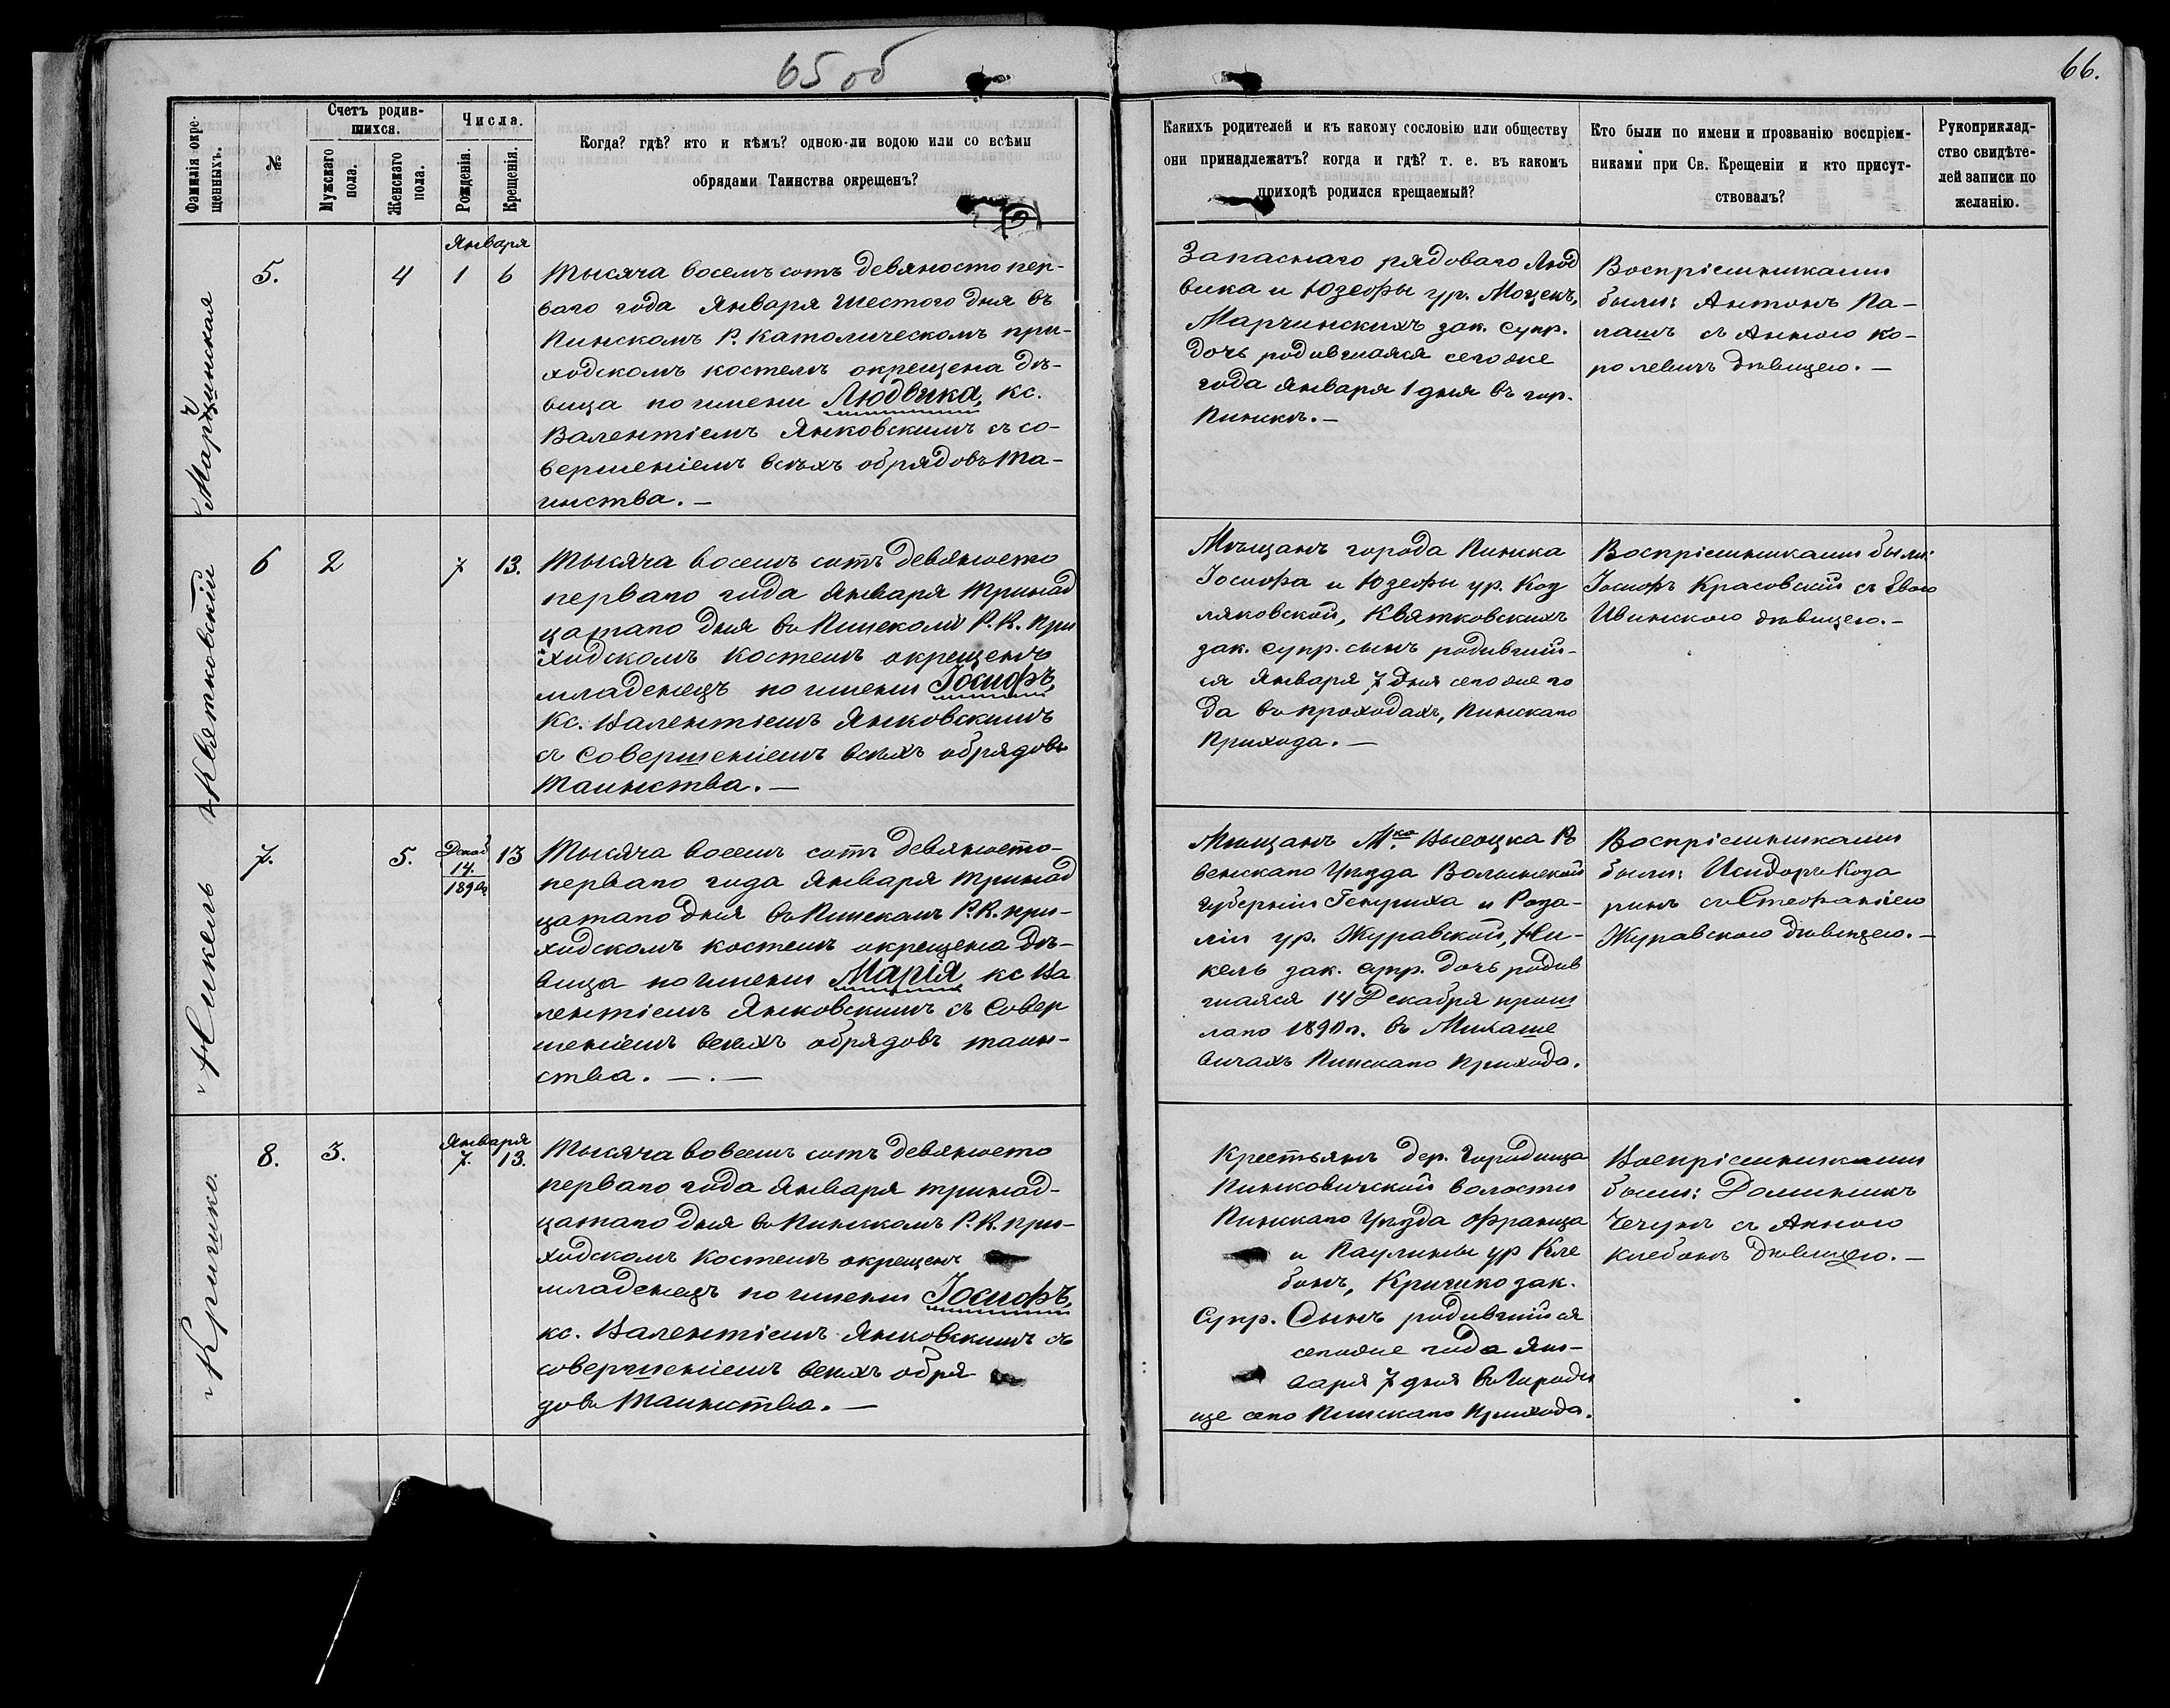 65 об
66.
Фамилія окре-
щенныхъ.
№
Счетъ родив-
шихся.
Мужскаго
пола.
Женскаго
пола.
Числа.
Рожденія.
Крещенія.
Когда? гдѣ? кто и кѣмъ? одною-ли водою или со всѣми
обрядами Таинства окрещенъ?
Какихъ родителей и къ какому сословію или обществу
они принадлежатъ? когда и гдѣ? т. е. въ какомъ
приходѣ родился крещаемый?
Кто были по имени и прозванію воспріем-
никами при Св. Крещеніи и кто присут-
ствовалъ?
Рукоприклад-
ство свидѣте-
лей записи по
желанію.
Января
5.
4
1
6
Тысяча восемь сотъ девяносто пер-
ваго года Января шестого дня въ
Пинскомъ Р. Католическомъ при-
ходскомъ костелѣ окрещена дѣ-
вица по имени Людвика, кс.
Валентіемъ Янковскимъ съ со-
вершеніемъ всѣхъ обрядовъ Та-
инства. —
Запаснаго рядоваго Люд
вика и Юзефы ур. Моцекъ,
Марчинскихъ зак. супр.
дочь родившаяся сего же
года Января 1 дня въ гор.
Пинскѣ. —
Воспріемниками
были: Антонъ Па-
лашъ съ Анною Ко-
ролевичъ дѣвицею. —
Квятковскій
6
2
7
13.
Тысяча восемь сотъ девяносто
перваго года Января тринад
цатаго дня въ Пинскомъ Р. К. при
ходскомъ костелѣ окрещенъ
младенецъ по имени Іосифъ,
Кс. Валентіемъ Янковскимъ
съ совершеніемъ всѣхъ обрядовъ
Таинства. —
Мѣщанъ города Пинска
Іосифа и Юзефы ур. Коз
ляковской, Квятковскихъ
зак. супр. сынъ родившій-
ся Января 7 дня сего же го
да въ проходахъ, Пинскаго
Прихода. —
Воспріемниками были:
Іосифъ Красовскій съ Евою
Ивинскою дѣвицею. —
Никель
7.
5.
Декаб
14.
1890г
13
Тысяча восемь сотъ девяносто-
перваго года Января тринад
цатаго дня въ Пинскомъ Р. К. при-
ходскомъ костелѣ окрещена дѣ-
вица по имени Марія кс Ва
лентіемъ Янковскимъ съ совер
шеніемъ всѣхъ обрядовъ таин-
ства. —.—
Мѣщанъ Мка Высоцка Ро
венскаго Уѣзда Волынской
Губерніи Генриха и Роза-
ліи ур. Журавской, Ни-
кель зак. супр. дочь родив
шаяся 14 Декабря прош
лаго 1890 г. въ Микаше
вичахъ Пинскаго Прихода.
Воспріемниками
были: Исидоръ Коза
ринъ съ Стефаніею
Журавскою дѣвицею. —
Кришико
8.
3.
Января
7.
13.
Тысяча восемь сотъ девяносто
перваго года Января тринад-
цатаго дня въ Пинскомъ Р. К. при-
ходскомъ костелѣ окрещенъ
младенецъ по имени Іосифъ,
кс. Валентіемъ Янковскимъ съ
совершеніемъ всѣхъ обря
довъ Таинства. —
Крестьянъ дер. Городища
Пинковичской волости
Пинскаго Уѣзда Франца
и Паулины ур Кле
бонъ, Кришико зак.
Супр. Сынъ родившійся
сего же года Ян-
варя 7 дня въ Городи
ще сего Пинскаго Прихода.
Воспріемниками
были: Доминикъ
Чечунъ съ Анною
Клебонъ дѣвицею. —